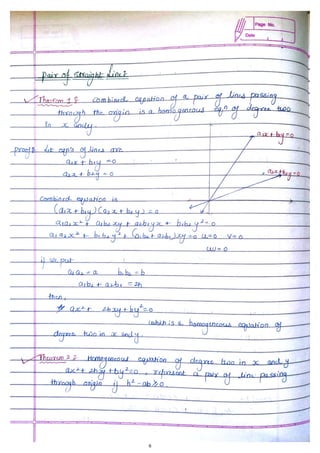 Page No.
Date
pair of straight lines
Theorem 1 : combined equation of a pair of lines passing
through the origin is a homogeneous eqn of degree two
in x and y.
a1x + b1y = 0
proof : Let eqn's of lines are
a1x + b1y = 0
a2x + b2y = 0
a2x + b2y = 0
Combined equation is
(a1x + b1y)(a2x + b2y) = 0
a1a2x² + a1b2xy + a2b1yx + b1b2y² = 0
a1a2x² + b1b2y² + (a1b2 + a2b1)xy = 0 u=0 v=0
uv = 0
if we put
a1a2 = a b1b2 = b
a1b2 + a2b1 = 2h
then,
ax² + 2hxy + by² = 0
which is a homogeneous equation of
degree two in x and y.
Theorem 2 : Homogeneous equation of degree two in x and y
ax² + 2hxy + by² = 0, represent a pair of line passing
through origin if h² - ab ≥ 0.